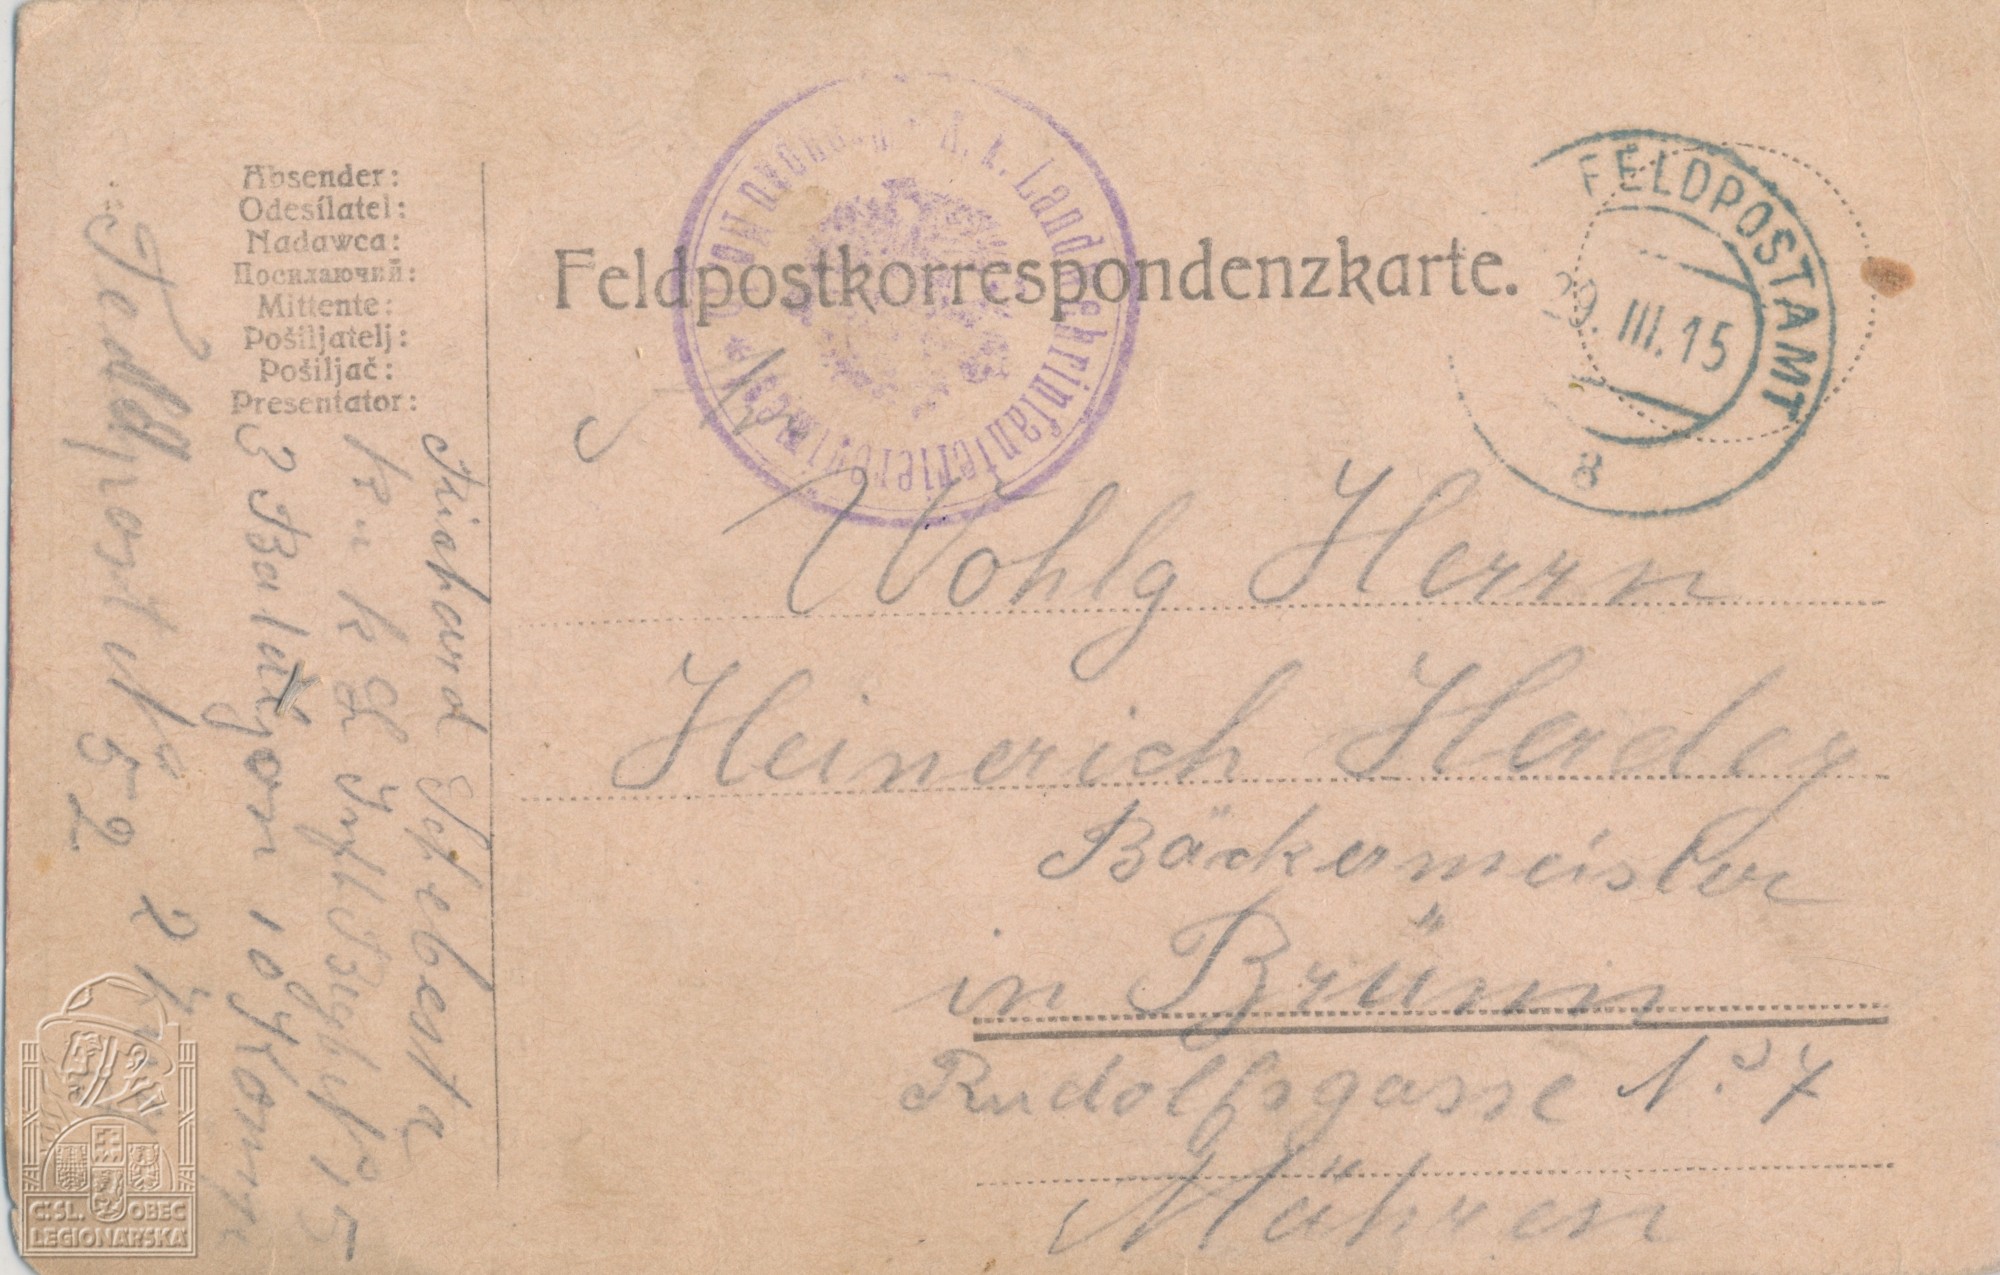 Absender:
Odesílatel:
Nadawca:
Посилаючий:
Mittente:
Pošiljatelj:
Pošiljač:
Presentator:
Feldpostkorrespondenzkarte.
k. k. Landwehrinfanterieregimen
FELDPOSTAMT
29. III. 15
8
Wohlg Herrn
Heinrich Herdey
Bäckermeister
in Brünn
Rudolfsgasse N. 7
Mähren
Richard Schebesta
k u k
3 Baillon 10 Komp
Feldpost 52
Č:SL. OBEC
LEGIONÁŘSKÁ